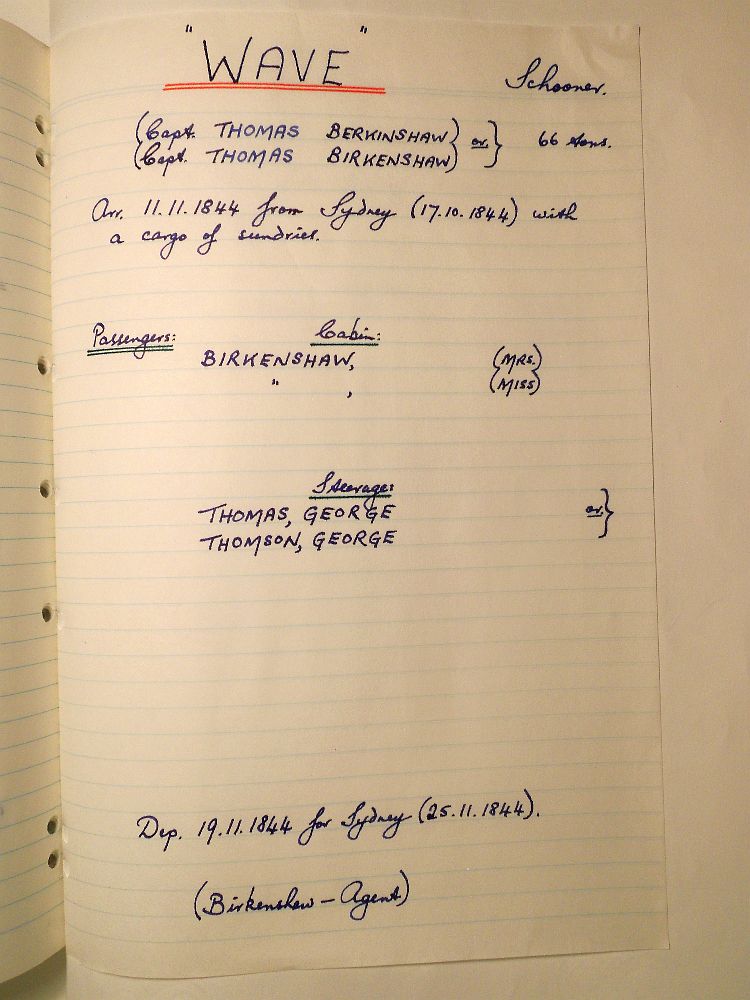 "WAVE" Schooner.
(Capt. THOMAS BERKINSHAW) or } 66 tons.
(Capt. THOMAS BIRKENSHAW)
Arr. 11.11.1844 from Sydney (17.10.1844) with
a cargo of sundries.
Passengers: Cabin:
BIRKENSHAW, (MRS.)
" , (MISS)
Steerage:
THOMAS, GEORGE or }
THOMSON, GEORGE
Dep. 19.11.1844 for Sydney (25.11.1844).
(Birkenshaw – Agent)